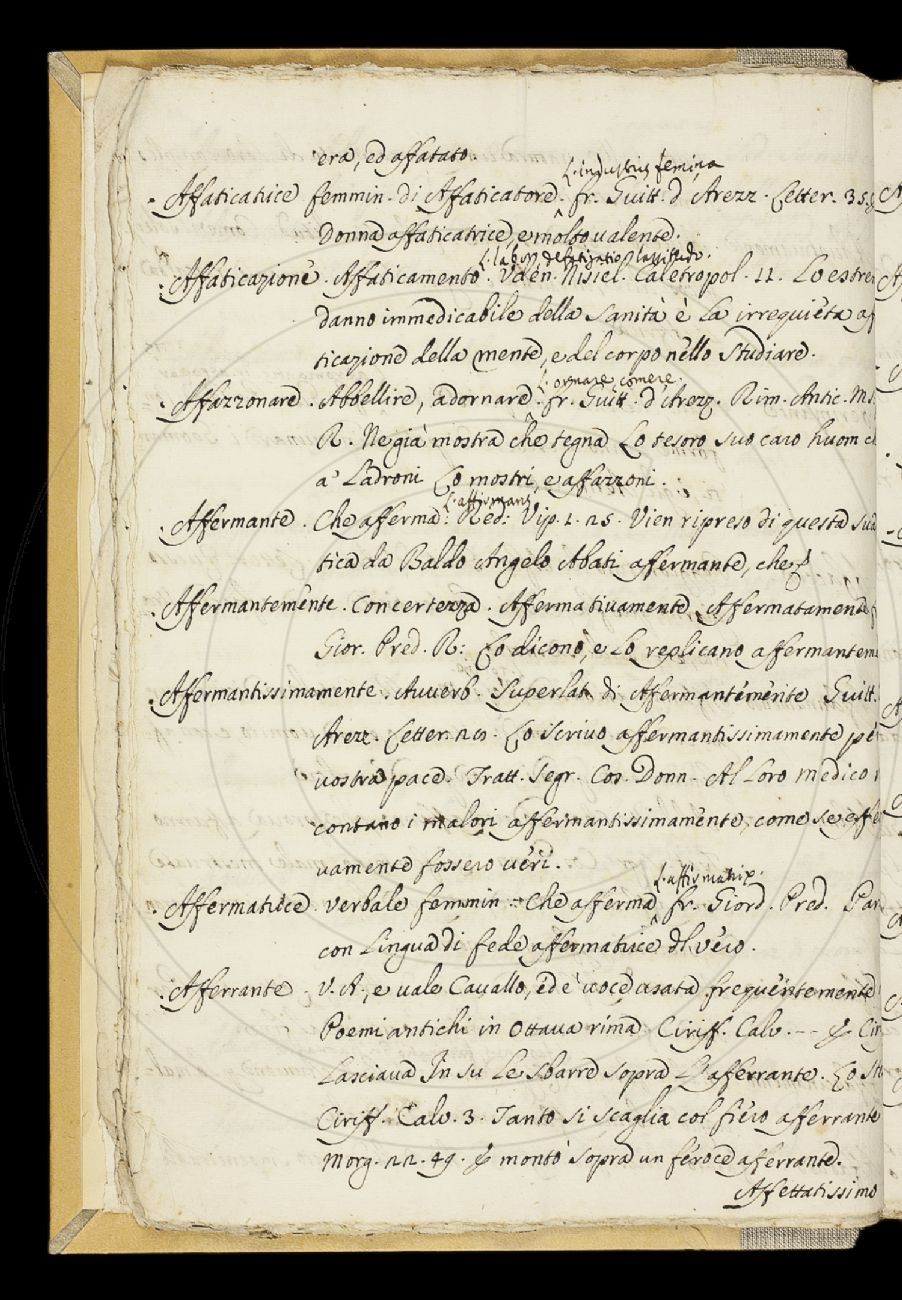 era, ed affatato.
L. industris femina
· Affaticatrice femmin. di Affaticatore. fr. Guitt. d'Arezz. Letter. 35.
Donna affaticatrice, e molto valente.
L. labor, defatigatio, lassitudo.
· Affaticazione. Affaticamento. Uden. Nisiel. Caletropol. 11. Lo estre
danno immedicabile della Sanità è La irrequieta af
ticazione della mente, e del corpo nello Studiare.
L. ornare, comere.
· Affazzonare. Abbellire, adornare. fr. Guitt. d'Arezz. Rim. Antic. Ms.
R. Ne già mostra che tegna Lo tesoro suo caro huom ch
a' Ladroni Lo mostri, e affazzoni.
L. affirmans
· Affermante. Che afferma. Red: Vip. 1. 25. Vien ripreso di questa sua
tica da Baldo Angelo Abati affermante, che
· Affermantemente. Con certezza. Affermativamente, Affermatamente
Gior. Pred. R: Lo dicono, e Lo replicano affermantem
· Affermantissimamente. Avverb. Superlat. di Affermantemente Guitt.
Arezz. Letter. 20. Lo scrivo affermantissimamente pe
vostra pace. Tratt. Segr. Cos. Donn. Al Loro medico
contano i malori affermantissimamente, come se effe
vamente fossero veri.
L. affirmatrix.
· Affermatrice. verbale femmin. Che afferma fr. Giord. Pred. Par
con Lingua di fede affermatrice dl. vero.
· Afferrante. V. A., e vale Cavallo, ed è voce usata frequentemente
Poemi antichi in Ottava rima Ciriff. Calv. -- E Cir
Lasciava In su Le Sbarre sopra L'afferrante. Lo St
Ciriff. Calv. 3. Tanto si scaglia col fiero afferrante
Morg. 22. 49. E montò sopra un feroce afferrante.
Affettatissimo